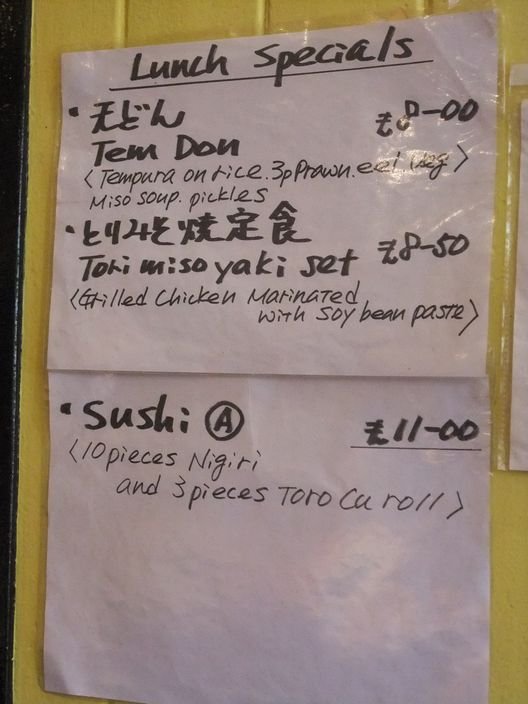 Lunch Specials
・天どん £8-00
Tem Don
〈Tempura on rice. 3p Prawn. eel, veg〉
Miso soup. pickles
・とりみそ焼定食
Tori miso yaki set £8-50
〈Grilled Chicken Marinated
with soy bean paste〉
・Sushi Ⓐ £11-00
〈10 pieces Nigiri
and 3 pieces Toro Cu roll〉